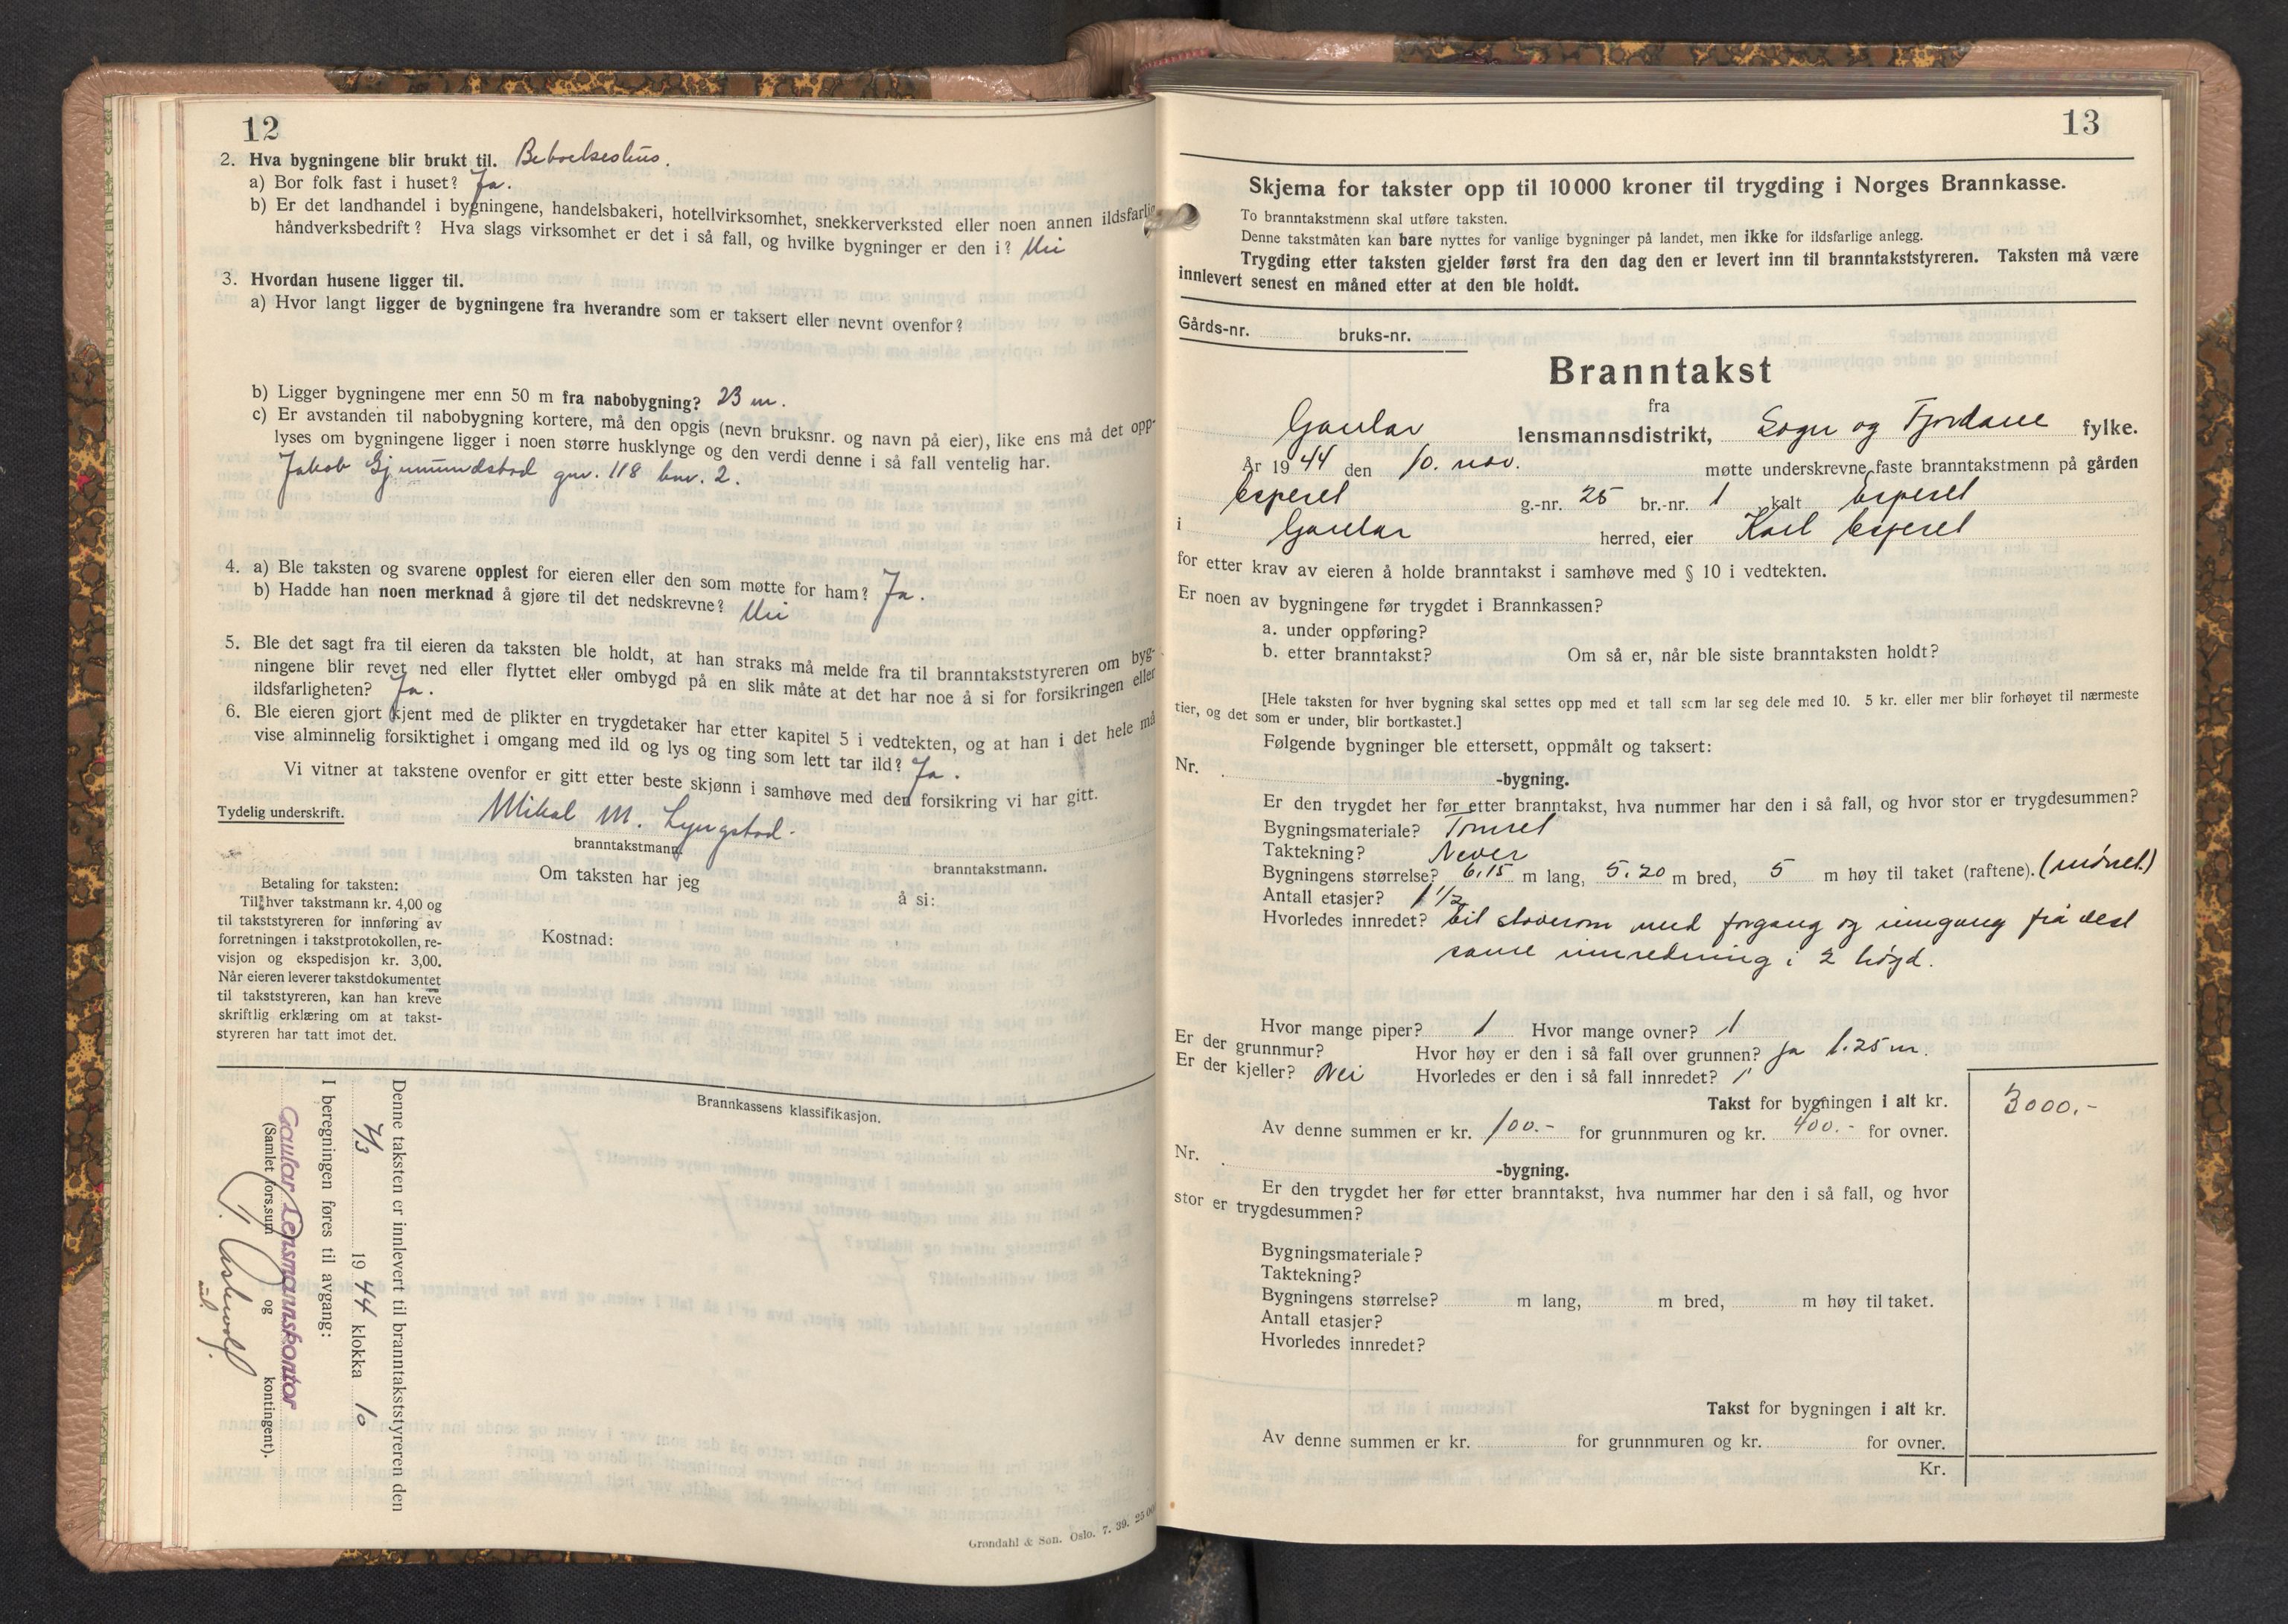 12
2. Hva bygningene blir brukt til. Beboelseshus.
a) Bor folk fast i huset? Ja.
b) Er det landhandel i bygningene, handelsbakeri, hotellvirksomhet, snekkerverksted eller noen annen ildsfarlig
håndverksbedrift? Hva slags virksomhet er det i så fall, og hvilke bygninger er den i? Nei
3. Hvordan husene ligger til.
a) Hvor langt ligger de bygningene fra hverandre som er taksert eller nevnt ovenfor?
b) Ligger bygningene mer enn 50 m fra nabobygning? 23 m.
c) Er avstanden til nabobygning kortere, må den opgis (nevn bruksnr. og navn på eier), like ens må det opp-
lyses om bygningene ligger i noen større husklynge og den verdi denne i så fall ventelig har.
Jakob gnr. 118 bnr. 2.
4. a) Ble taksten og svarene opplest for eieren eller den som møtte for ham? Ja.
b) Hadde han noen merknad å gjøre til det nedskrevne? Nei
5. Ble det sagt fra til eieren da taksten ble holdt, at han straks må melde fra til branntakststyreren om byg-
ningene blir revet ned eller flyttet eller ombygd på en slik måte at det har noe å si for forsikringen eller
ildsfarligheten? Ja.
6. Ble eieren gjort kjent med de plikter en trygdetaker har etter kapitel 5 i vedtekten, og at han i det hele må
vise alminnelig forsiktighet i omgang med ild og lys og ting som lett tar ild? Ja.
Vi vitner at takstene ovenfor er gitt etter beste skjønn i samhøve med den forsikring vi har gitt.
Tydelig underskrift. Mikal M. Lyngstad.
branntakstmann. branntakstmann.
Om taksten har jeg å si:
Betaling for taksten:
Til hver takstmann kr. 4,00 og
til takststyreren for innføring av
forretningen i takstprotokollen, re-
visjon og ekspedisjon kr. 3,00.
Når eieren leverer takstdokumentet
til takststyreren, kan han kreve
skriftlig erklæring om at takst-
styreren har tatt imot det.
Kostnad:
Brannkassens klassifikasjon.
Denne taksten er innlevert til branntakststyreren den
7/3 1944 klokka 10
I beregningen føres til avgang:
Gaular Lensmannskontor
(Samlet fors.sum og kontingent).
Grøndahl & Søn. Oslo. 7. 39. 2500
13
Skjema for takster opp til 10 000 kroner til trygding i Norges Brannkasse.
To branntakstmenn skal utføre taksten.
Denne takstmåten kan bare nyttes for vanlige bygninger på landet, men ikke for ildsfarlige anlegg.
Trygding etter taksten gjelder først fra den dag den er levert inn til branntakststyreren. Taksten må være
innlevert senest en måned etter at den ble holdt.
Gårds-nr. bruks-nr.
Branntakst
fra
Gaular lensmannsdistrikt, Sogn og Fjordane fylke.
År 1944 den 10. nov. møtte underskrevne faste branntakstmenn på gården
Espeset g.-nr. 25 br.-nr. 1 kalt Espeset
i Gaular herred, eier Karl Espeset
for etter krav av eieren å holde branntakst i samhøve med § 10 i vedtekten.
Er noen av bygningene før trygdet i Brannkassen?
a. under oppføring?
b. etter branntakst? Om så er, når ble siste branntaksten holdt?
[Hele taksten for hver bygning skal settes opp med et tall som lar seg dele med 10. 5 kr. eller mer blir forhøyet til nærmeste
tier, og det som er under, blir bortkastet.]
Følgende bygninger ble ettersett, oppmålt og taksert:
Nr. -bygning.
Er den trygdet her før etter branntakst, hva nummer har den i så fall, og hvor stor er trygdesummen?
Bygningsmateriale? Tømret
Taktekning? Never
Bygningens størrelse? 6,15 m lang, 5.20 m bred, 5 m høy til taket (raftene). (mønet.)
Antall etasjer? 1 1/2
Hvorledes innredet? Eit stoverom med forgang og inngang frå vest
same innredning i 2 høgd.
Hvor mange piper? 1 Hvor mange ovner? 1
Er der grunnmur? Hvor høy er den i så fall over grunnen? ja 1.25 m.
Er der kjeller? Nei Hvorledes er den i så fall innredet?
Takst for bygningen i alt kr. 3000.-
Av denne summen er kr. 100.- for grunnmuren og kr. 400.- for ovner.
Nr. -bygning.
Er den trygdet her før etter branntakst, hva nummer har den i så fall, og hvor
stor er trygdesummen?
Bygningsmateriale?
Taktekning?
Bygningens størrelse? m lang, m bred, m høy til taket.
Antall etasjer?
Hvorledes innredet?
Takst for bygningen i alt kr.
Av denne summen er kr. for grunnmuren og kr. for ovner.
Kr.